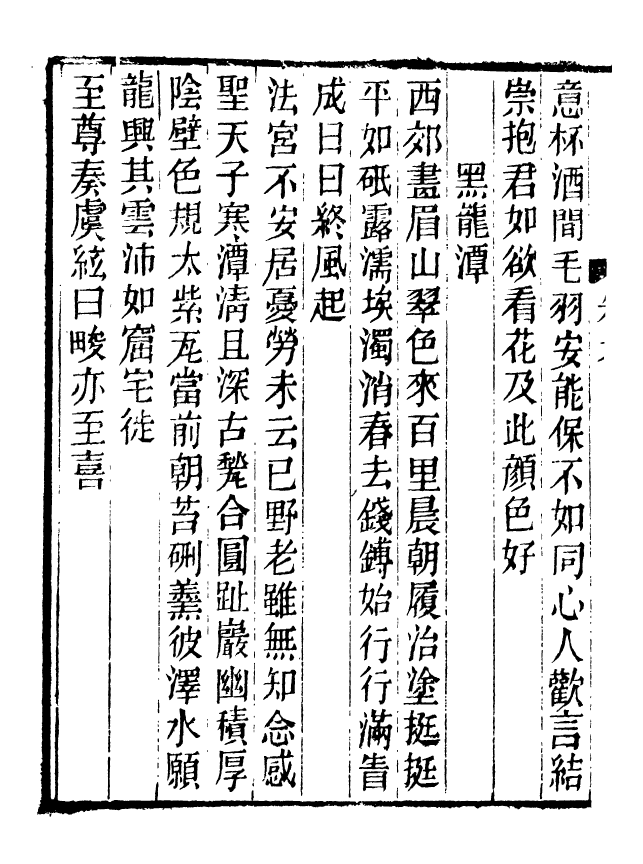 意杯酒間毛羽安能保不如同心人歡言結
崇抱君如欲看花及此顏色好
黑龍潭
西郊畫眉山翠色來百里晨朝履治塗挺挺
平如砥露濡埃濁消春去錢鎛始行行滿眚
成日日終風起
法宮不安居憂勞未云已野老雖無知念感
聖天子寒潭清且深古甃合圓趾巖幽積厚
陰壁色規太紫瓦當前朝苔硎羹彼澤水願
龍興其雲沛如窟宅徙
至尊奏虞絃曰畯亦至喜